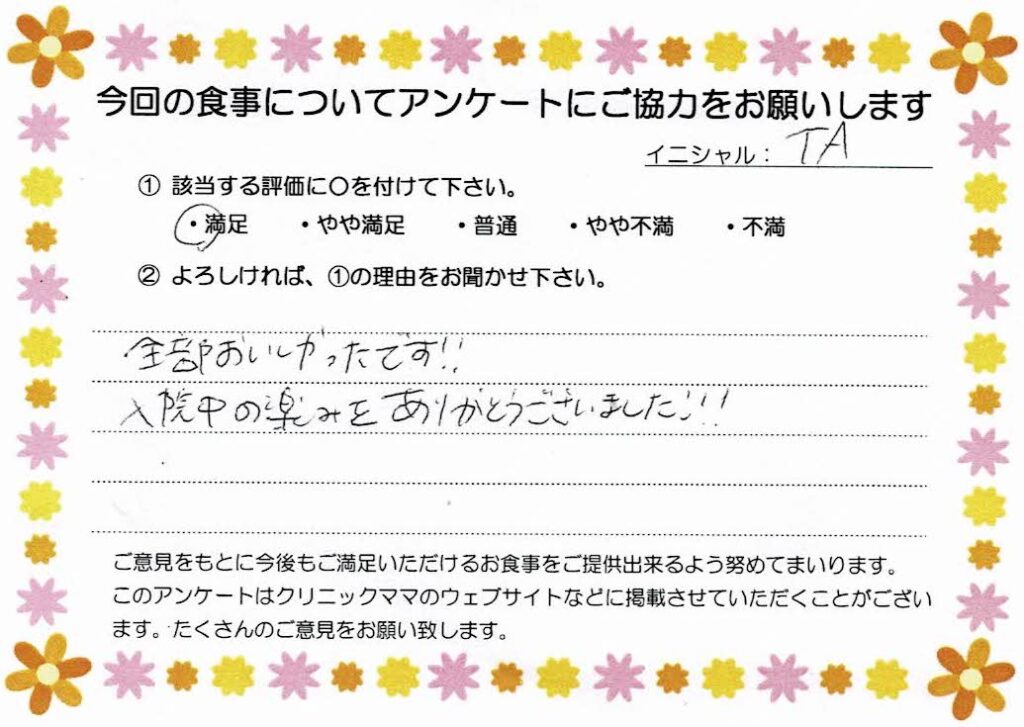 今回の食事についてアンケートにご協力をお願いします
イニシャル： TA
① 該当する評価に○を付けて下さい。
・満足 ・やや満足 ・普通 ・やや不満 ・不満
② よろしければ、①の理由をお聞かせ下さい。
全部おいしかったです!!
入院中の楽しみをありがとうございました!!!
ご意見をもとに今後もご満足いただけるお食事をご提供出来るよう努めてまいります。
このアンケートはクリニックママのウェブサイトなどに掲載させていただくことがござい
ます。たくさんのご意見をお願い致します。